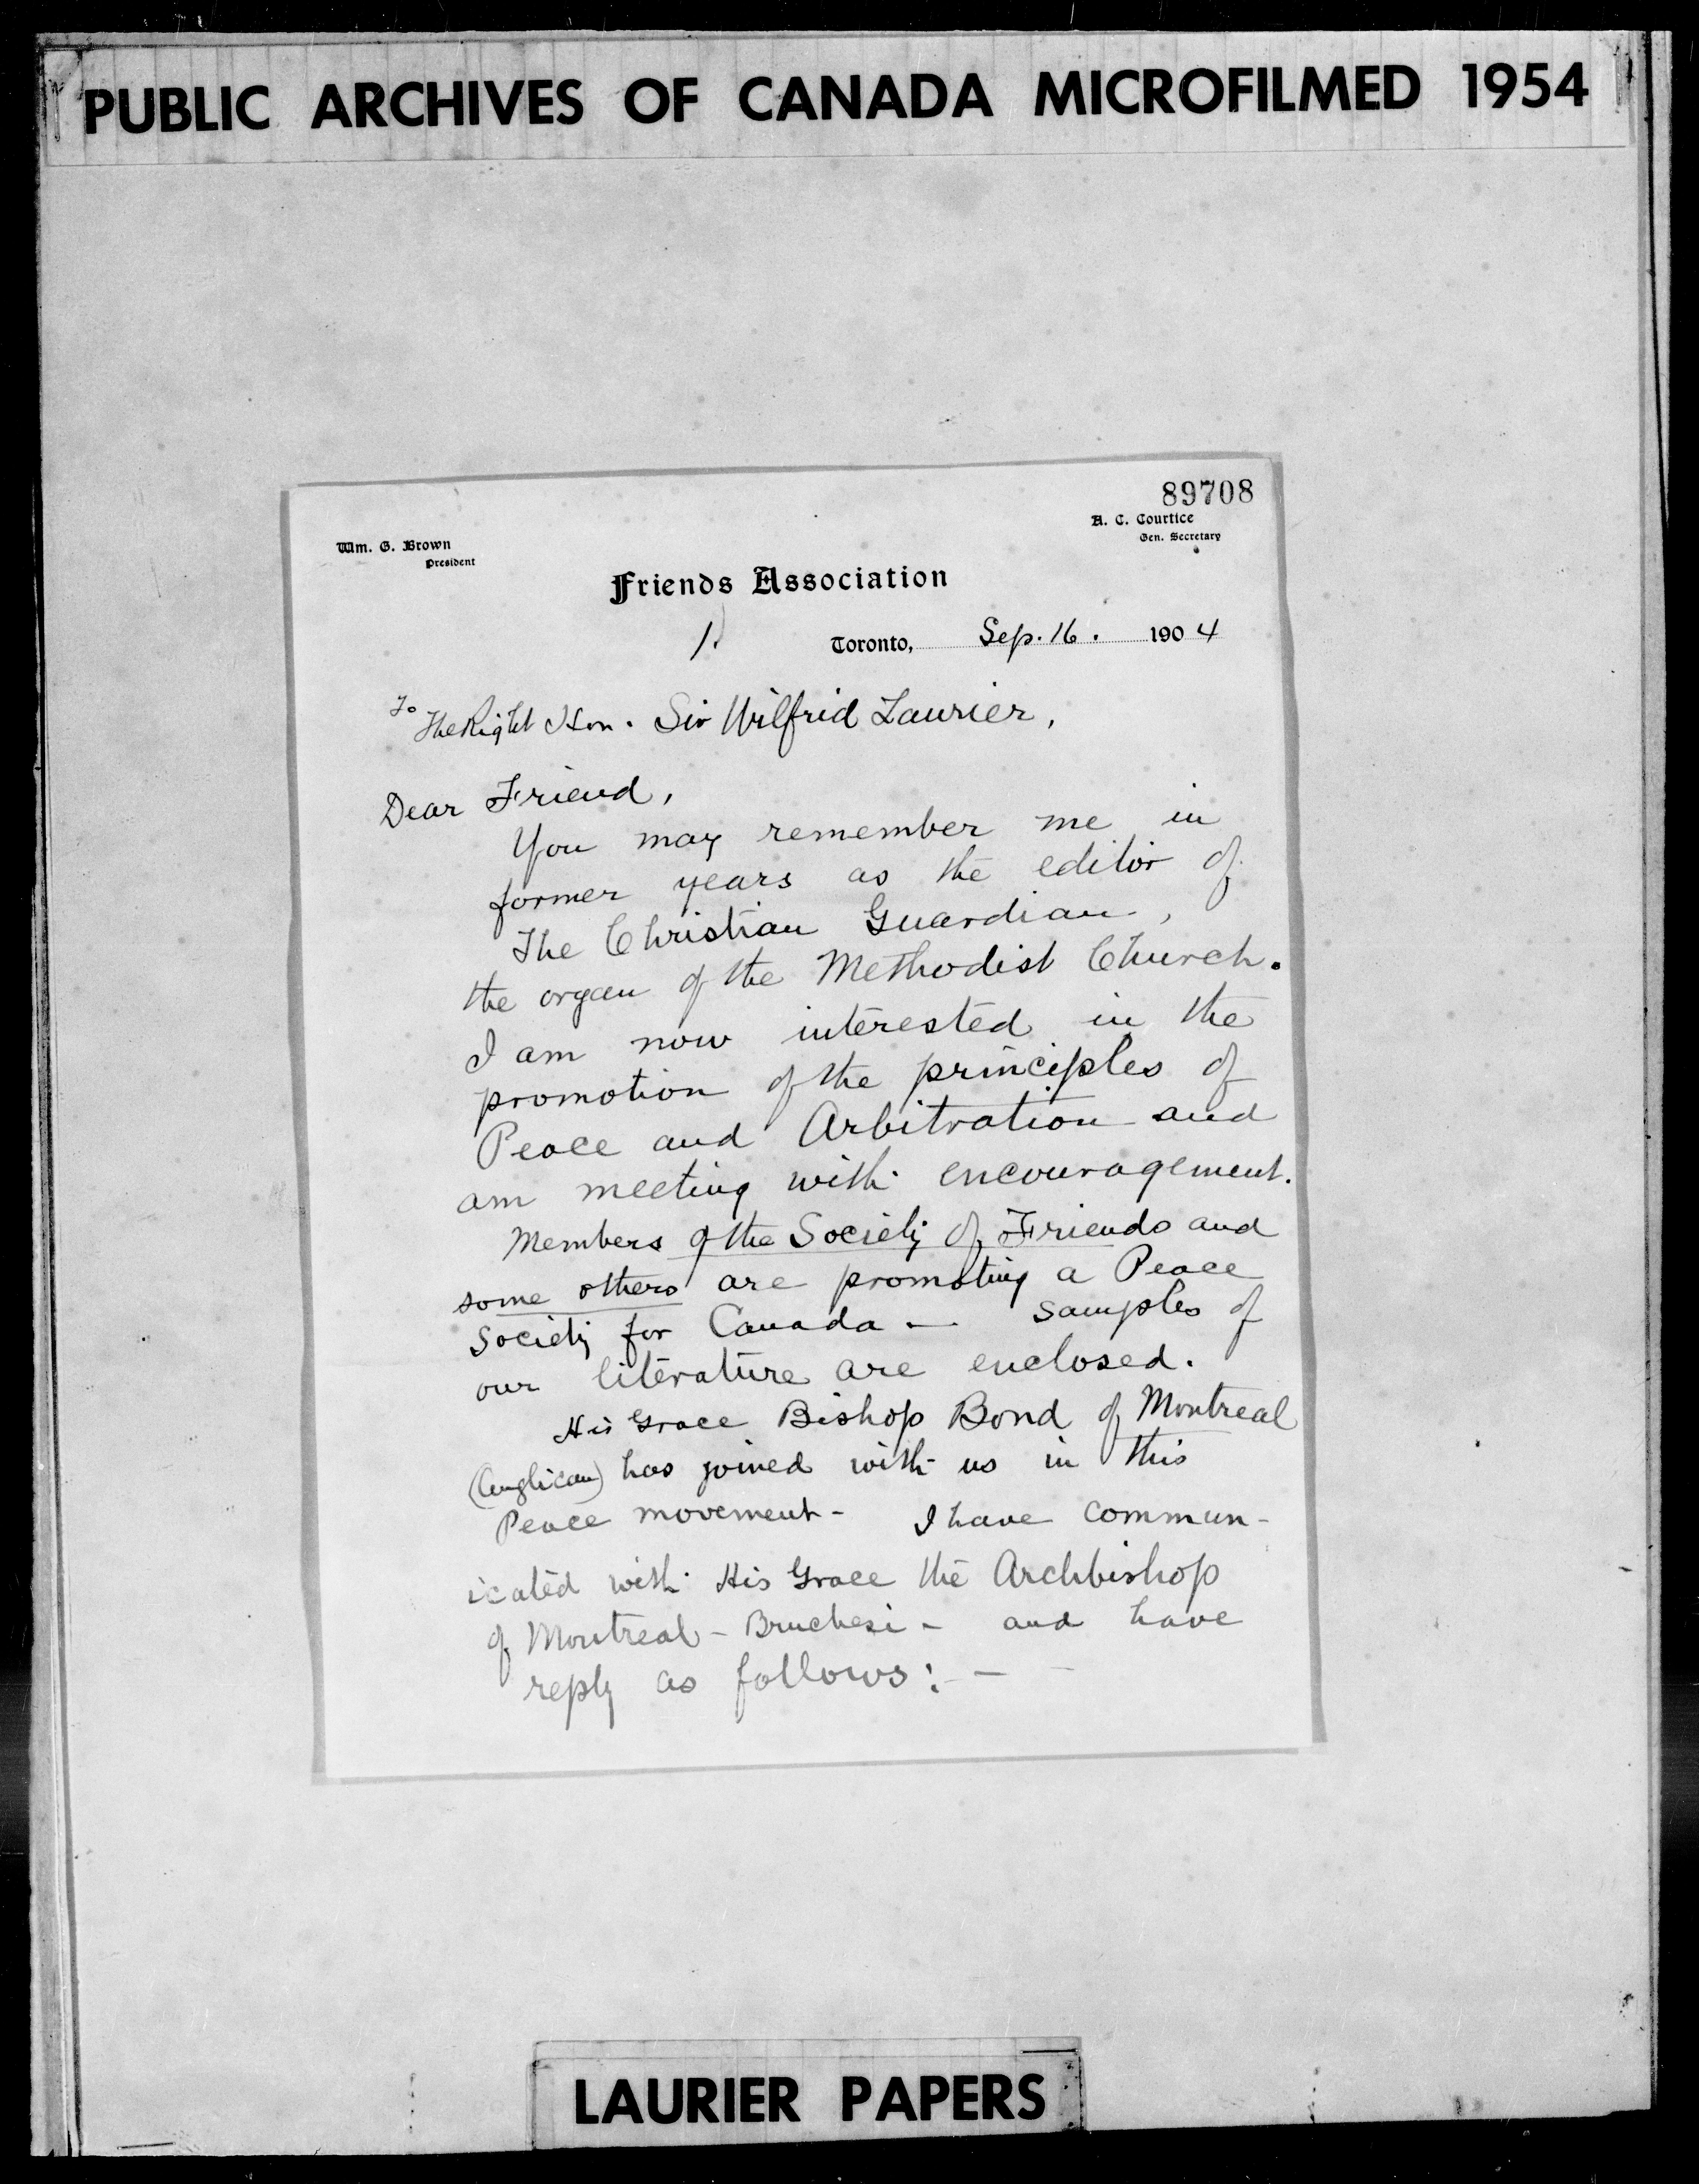 PUBLIC ARCHIVES OF CANADA MICROFILMED 1954
89708
A. C. Courtice
Gen. Secretary
Wm. G. Brown
President
Friends Association
1.
Toronto, Sep. 16. 1904
To The Right Hon. Sir Wilfrid Laurier,
Dear Friend,
You may remember me in
former years as the editor of
The Christian Guardian,
the organ of the Methodist Church.
I am now interested in the
promotion of the principles of
Peace and Arbitration and
am meeting with encouragement.
Members of the Society of Friends and
some others are promoting a Peace
Society for Canada — samples of
our literature are enclosed.
His Grace Bishop Bond of Montreal
(Anglican) has joined with us in this
Peace movement - I have commun-
icated with His Grace the Archbishop
of Montreal - Bruchesi - and have
reply as follows: —
LAURIER PAPERS